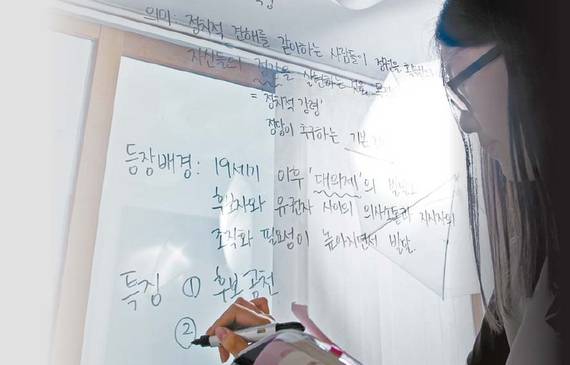 의미: 정치적 견해를 같이하는 사람들이 정권을
자신들의 정강을 실현하는 것을
= 정치적 강령'
정당이 추구하는 기본
등장배경: 19세기 이후 '대의제'의
후보자와 유권자 사이의 의사소통과 지지자의
조직화 필요성이 높아지면서 발달.
특징 ① 후보 공천
②